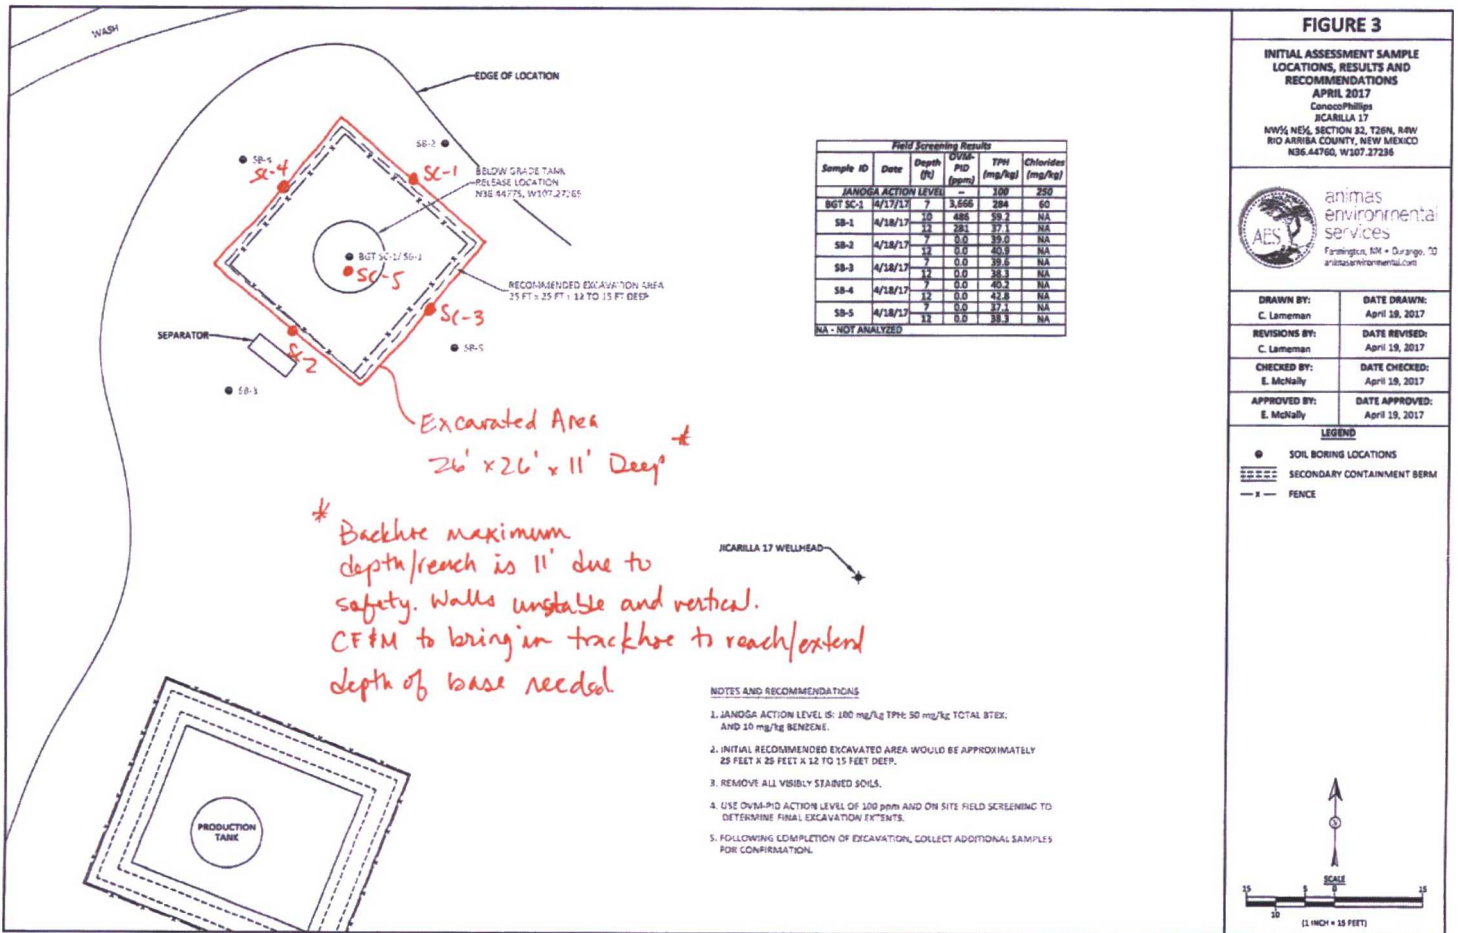 WASH
EDGE OF LOCATION
SB-2
SC-4
SC-1
BELOW GRADE TANK
RELEASE LOCATION
N36.44775, W107.27265
BGT SC-1/SB-1
SC-5
RECOMMENDED EXCAVATION AREA
25 FT x 25 FT x 12 TO 15 FT DEEP
SC-3
SEPARATOR
SC-2
SB-3
Excavated Area
26' x 26' x 11' Deep *
* Backhoe maximum
depth/reach is 11' due to
safety. Walls unstable and vertical.
CF&M to bring in trackhoe to reach/extend
depth of base needed.
JICARILLA 17 WELLHEAD
PRODUCTION
TANK
Field Screening Results
Sample ID Date Depth (ft) OVM-PID (ppm) TPH (mg/kg) Chlorides (mg/kg)
JANOGA ACTION LEVEL -- 100 250
BGT SC-1 4/17/17 7 3,666 284 60
SB-1 4/18/17 10 486 59.2 NA
12 281 37.1 NA
SB-2 4/18/17 7 0.0 39.0 NA
12 0.0 40.9 NA
SB-3 4/18/17 7 0.0 39.6 NA
12 0.0 38.3 NA
SB-4 4/18/17 7 0.0 40.2 NA
12 0.0 42.8 NA
SB-5 4/18/17 7 0.0 37.1 NA
12 0.0 38.3 NA
NA - NOT ANALYZED
NOTES AND RECOMMENDATIONS
1. JANOGA ACTION LEVEL IS: 100 mg/kg TPH; 50 mg/kg TOTAL BTEX;
AND 10 mg/kg BENZENE.
2. INITIAL RECOMMENDED EXCAVATED AREA WOULD BE APPROXIMATELY
25 FEET X 25 FEET X 12 TO 15 FEET DEEP.
3. REMOVE ALL VISIBLY STAINED SOILS.
4. USE OVM-PID ACTION LEVEL OF 100 ppm AND ON SITE FIELD SCREENING TO
DETERMINE FINAL EXCAVATION EXTENTS.
5. FOLLOWING COMPLETION OF EXCAVATION, COLLECT ADDITIONAL SAMPLES
FOR CONFIRMATION.
FIGURE 3
INITIAL ASSESSMENT SAMPLE
LOCATIONS, RESULTS AND
RECOMMENDATIONS
APRIL 2017
ConocoPhillips
JICARILLA 17
NW¼ NE¼, SECTION 32, T26N, R4W
RIO ARRIBA COUNTY, NEW MEXICO
N36.44760, W107.27236
AES
animas
environmental
services
Farmington, NM • Durango, CO
animasenvironmental.com
DRAWN BY: DATE DRAWN:
C. Lameman April 19, 2017
REVISIONS BY: DATE REVISED:
C. Lameman April 19, 2017
CHECKED BY: DATE CHECKED:
E. McNally April 19, 2017
APPROVED BY: DATE APPROVED:
E. McNally April 19, 2017
LEGEND
SOIL BORING LOCATIONS
SECONDARY CONTAINMENT BERM
— x — FENCE
SCALE
15 5 0 15
10
(1 INCH = 15 FEET)